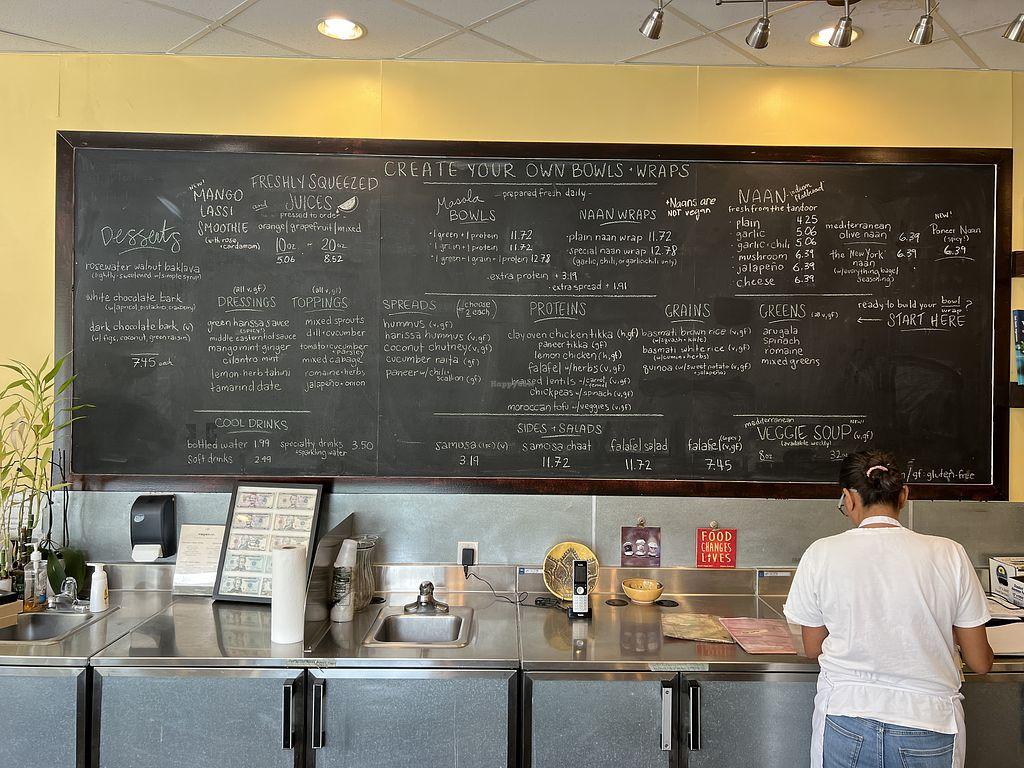 CREATE YOUR OWN BOWLS • WRAPS
- prepared fresh daily -
Desserts
rosewater walnut baklava
(lightly sweetened w/ simple syrup)
white chocolate bark
(w/ apricot, pistachio, cranberry)
dark chocolate bark (v)
(w/ figs, coconut, green raisin)
7.45 each
NEW!
MANGO
LASSI
SMOOTHIE
(with rose, cardamom)
and
FRESHLY SQUEEZED
JUICES
- pressed to order -
orange | grapefruit | mixed
10oz. ~ 20oz
5.06 8.52
(all v, gf)
DRESSINGS
green harissa sauce
(spicy)
middle eastern hot sauce
mango mint ginger
cilantro mint
lemon herb tahini
tamarind date
(all v, gf)
TOPPINGS
mixed sprouts
dill • cucumber
tomato • cucumber
• parsley
mixed cabbage
romaine • herbs
jalapeño • onion
COOL DRINKS
bottled water 1.99
soft drinks 2.49
specialty drinks 3.50
• sparkling water
Masala
BOWLS
• 1 green + 1 protein 11.72
• 1 grain + 1 protein 11.72
• 1 green + 1 grain + 1 protein 12.78
NAAN WRAPS
• plain naan wrap 11.72
• special naan wrap 12.78
(garlic, chili, or garlic chili only)
*Naans are
NOT vegan
• extra protein + 3.19
• extra spread + 1.91
SPREADS
(choose 2 each)
hummus (v, gf)
harissa hummus (v, gf)
coconut chutney (v, gf)
cucumber raita (gf)
paneer w/ chili,
scallion (gf)
PROTEINS
clay oven chicken tikka (h, gf)
paneer tikka (gf)
lemon chicken (h, gf)
falafel w/ herbs (v, gf)
chickpeas w/ spinach (v, gf)
moroccan tofu w/ veggies (v, gf)
HappyCow
GRAINS
basmati brown rice (v, gf)
(w/ squash + kale)
basmati white rice (v, gf)
(w/ cumin + herbs)
quinoa (w/ sweet potato
+ jalapeño) (v, gf)
GREENS (all v, gf)
arugala
spinach
romaine
mixed greens
SIDES + SALADS
samosa (v)
3.19
samosa chaat
11.72
falafel salad
11.72
falafel (v, gf)
7.45
NAAN indian flatbread
fresh from the tandoor
plain 4.25
garlic 5.06
garlic • chili 5.06
mushroom 6.39
jalapeño 6.39
cheese 6.39
mediterranean
olive naan 6.39
the 'New York'
naan 6.39
(w/ everything bagel
seasoning)
NEW!
Paneer Naan
(spicy!)
6.39
ready to build your bowl wrap ?
START HERE
mediterranean
VEGGIE SOUP (v, gf)
NEW
(available weekly)
8oz
32oz
gf - gluten-free
FOOD
CHANGES
LIVES